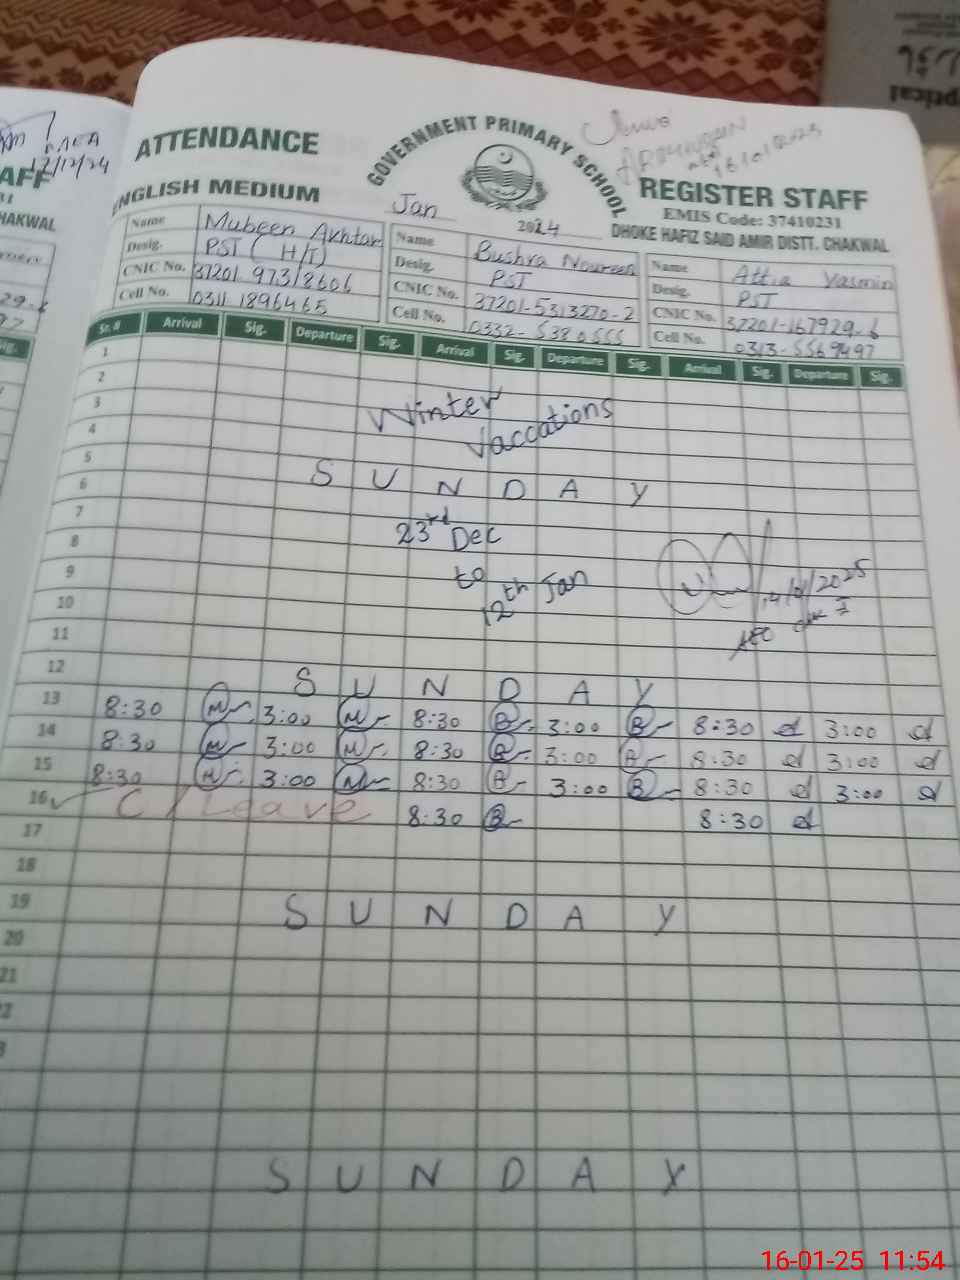 ATTENDANCE
GOVERNMENT PRIMARY SCHOOL
REGISTER STAFF
ENGLISH MEDIUM
Jan 2024
EMIS Code: 37410231
DHOKE HAFIZ SAID AMIR DISTT. CHAKWAL
12/12/24
AFF
HAKWAL
Name Mubeen Akhtar Name Bushra Noureen Name Attia Yasmin
Desig. PST (H/T) Desig. PST Desig. PST
CNIC No. 37201.97318606 CNIC No. 37201-5313270-2 CNIC No. 37201-167929-6
Cell No. 0311 1896465 Cell No. 0332-5380555 Cell No. 0313-5569497
Sr. # Arrival Sig. Departure Sig. Arrival Sig. Departure Sig. Arrival Sig. Departure Sig.
1
2
3 Winter
4 Vaccations
5 S U N D A Y
6
7 23rd Dec
8 to
9 12th Jan
14/1/2025
10
11
12 S U N D A Y
13 8:30 3:00 8:30 3:00 8:30 3:00
14 8:30 3:00 8:30 3:00 8:30 3:00
15 8:30 3:00 8:30 3:00 8:30 3:00
16 C/Leave 8:30 8:30
17
18
19 S U N D A Y
20
21
S U N D A Y
16-01-25 11:54